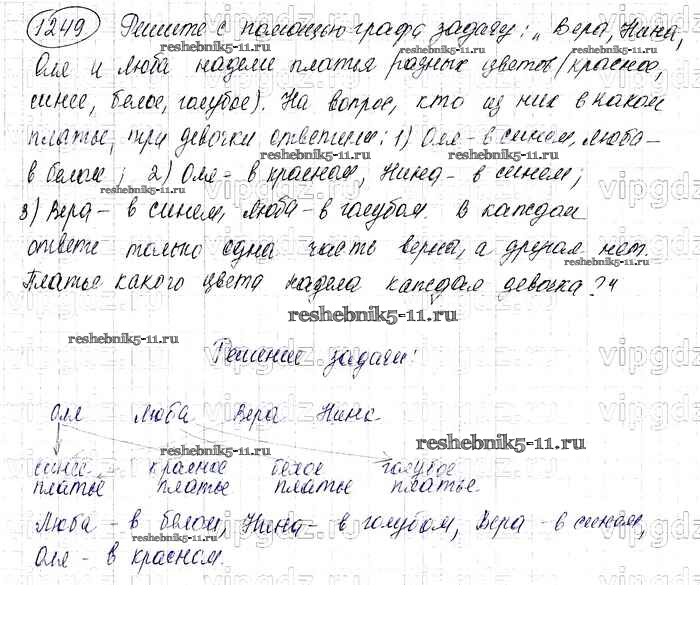 1249 Решите с помощью графа задачу: „Вера, Нина,
reshebnik5-11.ru
Оля и Люба надели платья разных цветов (красное,
синее, белое, голубое). На вопрос, кто из них в каком
платье, три девочки ответили: 1) Оля - в синем, Люба -
reshebnik5-11.ru
в белом; 2) Оля - в красном, Нина - в синем;
reshebnik5-11.ru vipgdz
3) Вера - в синем, Люба - в голубом. В каждом
ответе только одна часть верна, а другая нет.
reshebnik5-11.ru
Платье какого цвета надела каждая девочка?"
reshebnik5-11.ru
reshebnik5-11.ru
Решение задачи:
vipgdz.ru
Оля Люба Вера Нина
reshebnik5-11.ru
reshebnik5-11.ru
синее красное белое голубое
платье платье платье платье.
Люба - в белом, Нина - в голубом, Вера - в синем,
reshebnik5-11.ru
Оля - в красном.